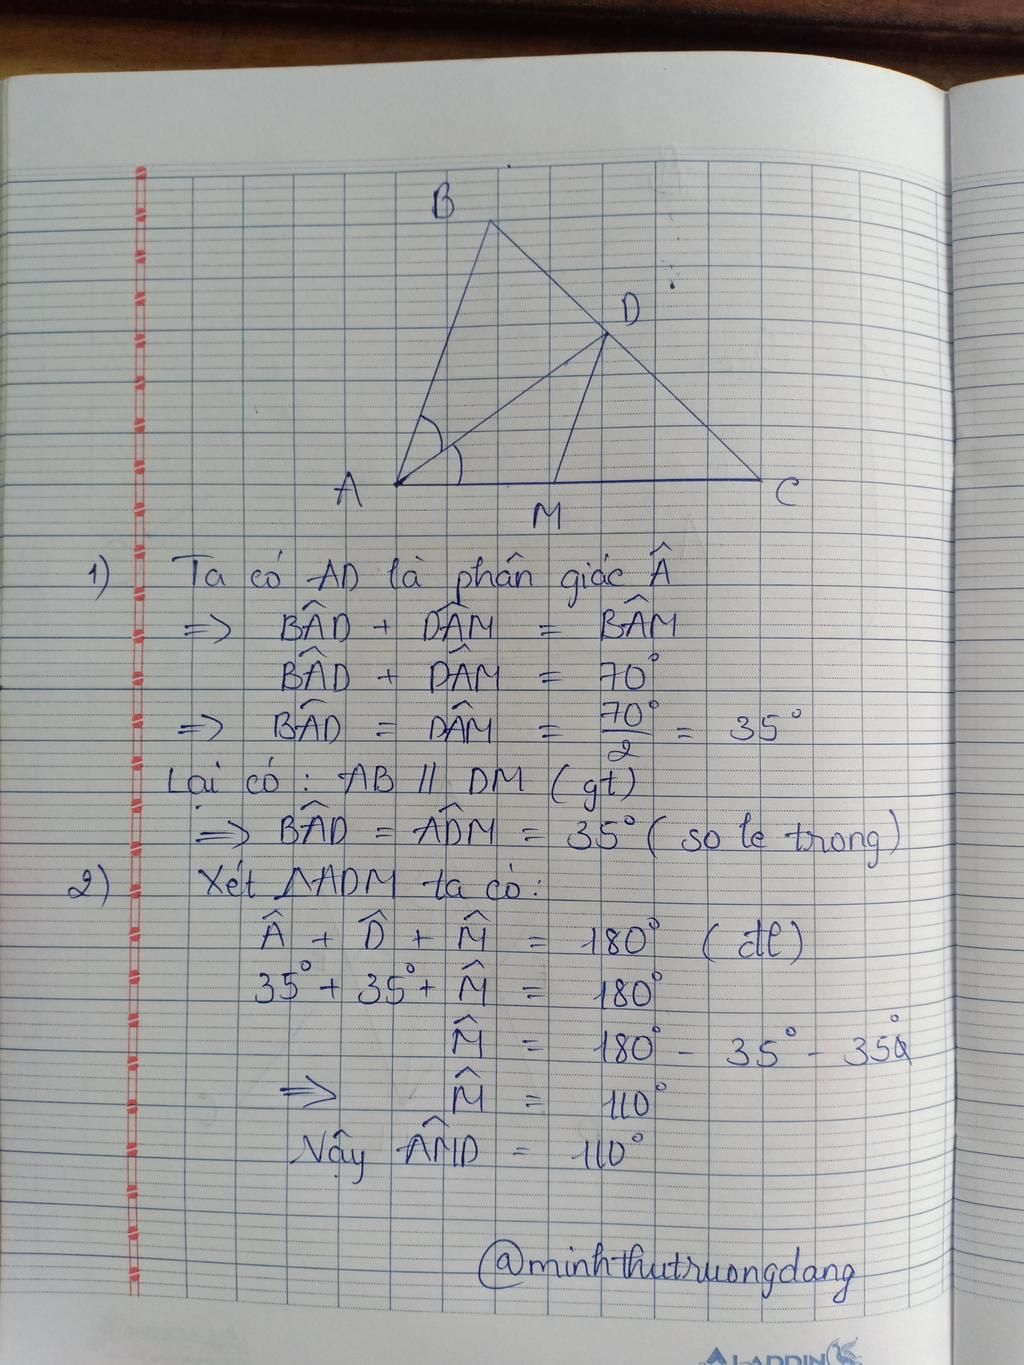 B
D
A
M
C
1) Ta có AD là phân giác Â
=> BÂD + DÂM = BÂM
BÂD + DÂM = 70°
=> BÂD = DÂM = 70°/2 = 35°
Lại có : AB // DM (gt)
=> BÂD = AD̂M = 35° ( so le trong)
2) Xét ΔADM ta có:
Â + D̂ + M̂ = 180° (đl)
35° + 35° + M̂ = 180°
M̂ = 180° - 35° - 35°
=> M̂ = 110°
Vậy AM̂D = 110°
@minhthutruongdang
ALADDIN